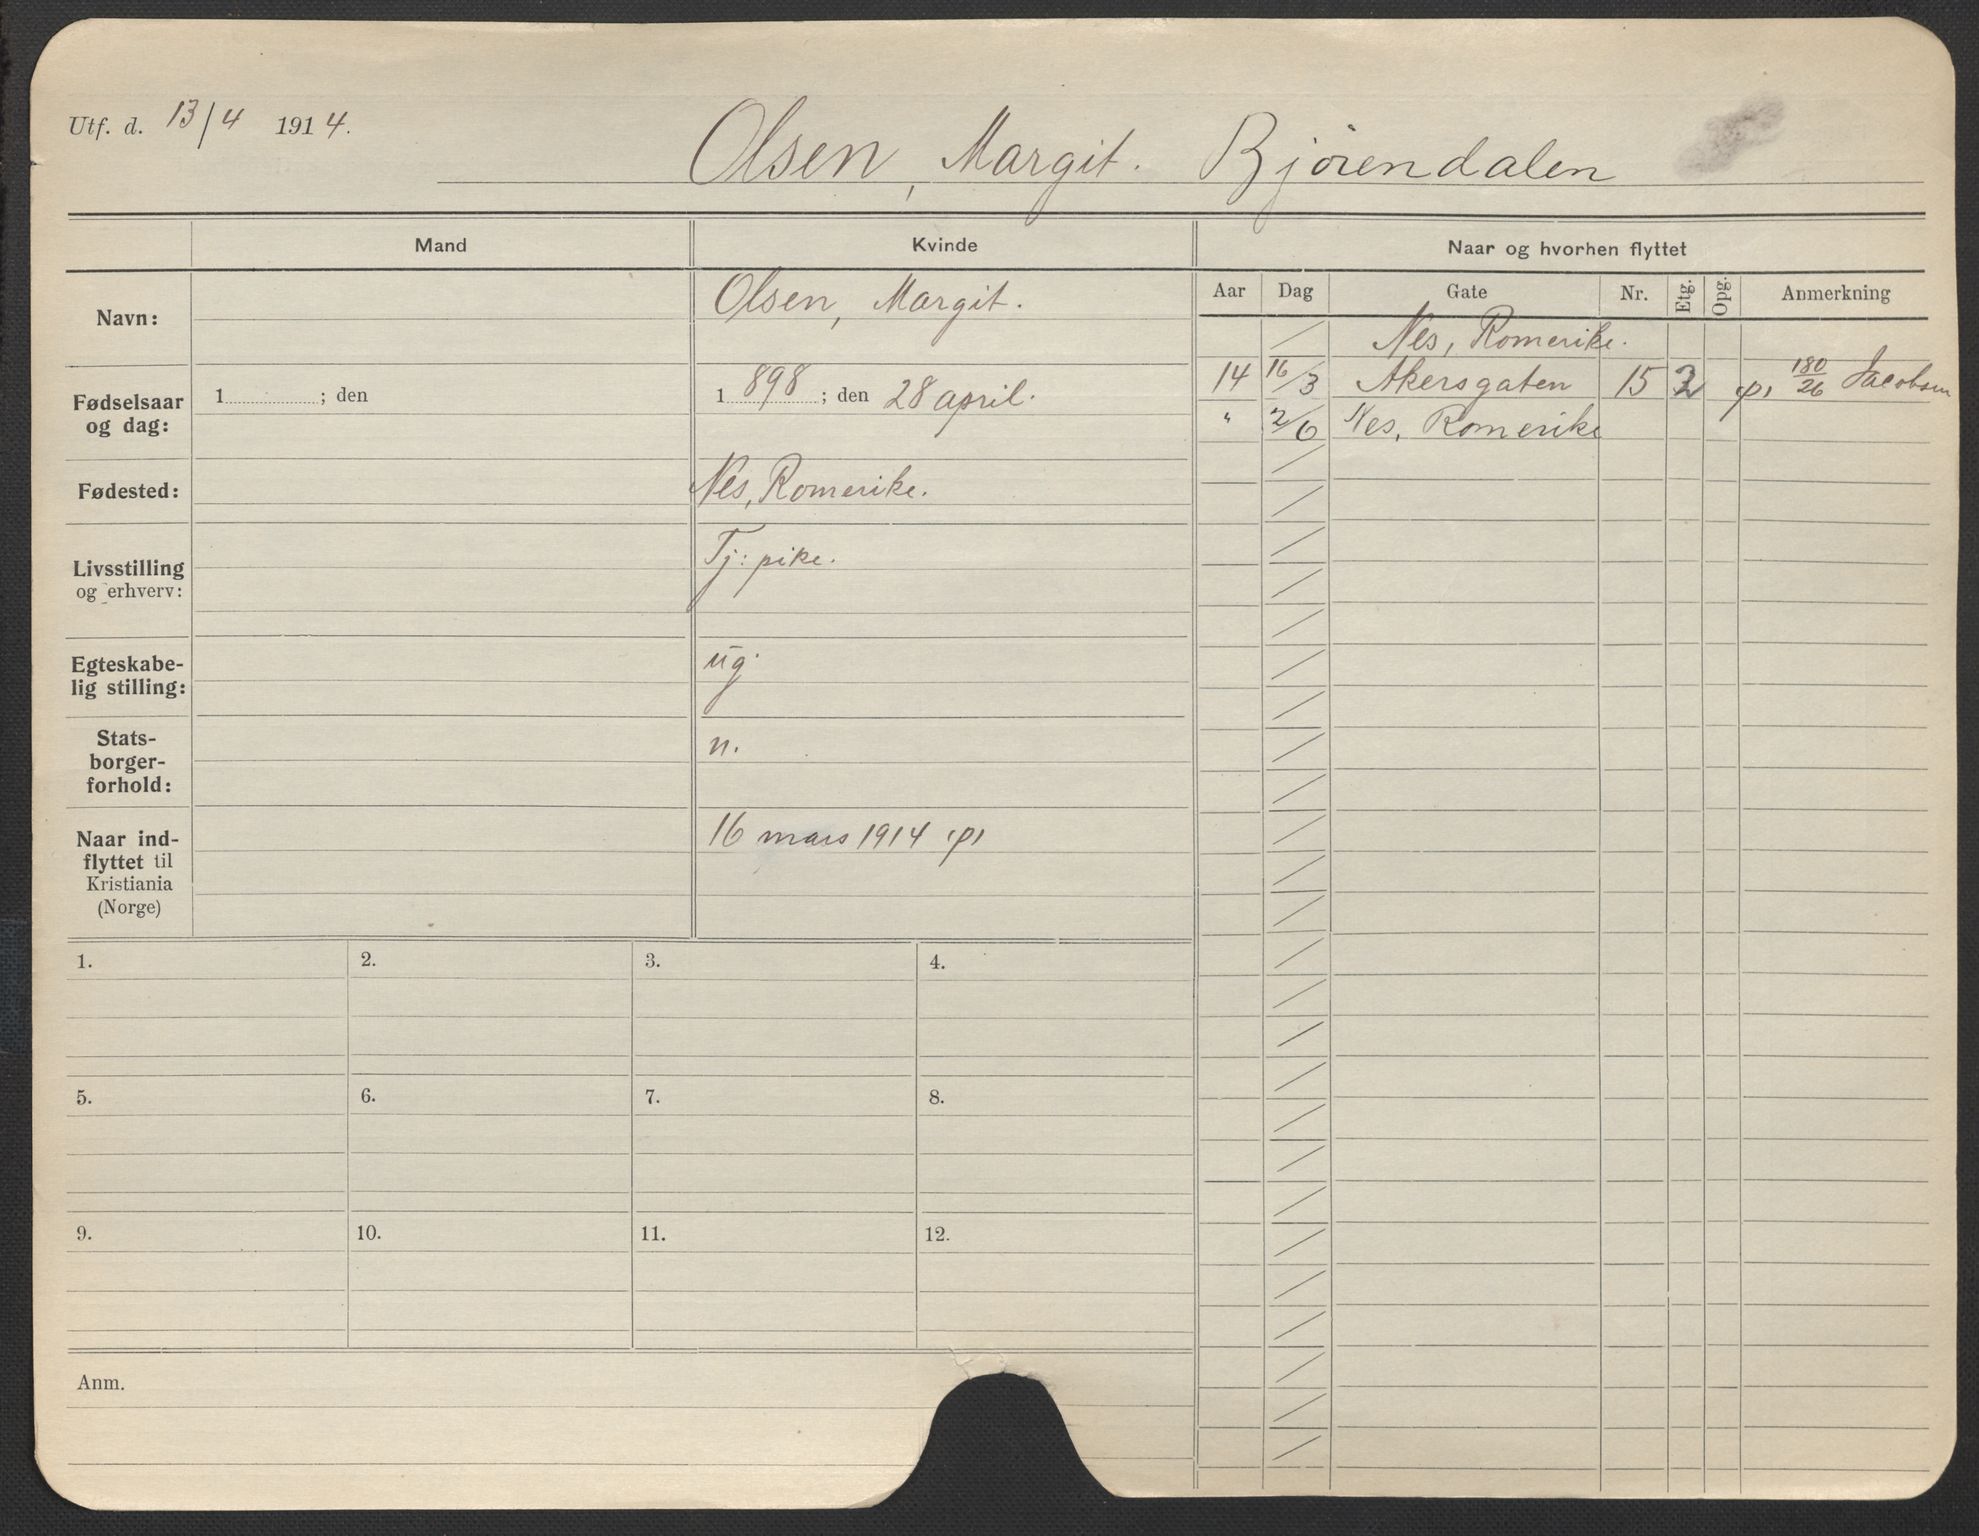 Utf. d. 13/4 1914.
Olsen, Margit. Bjørendalen
Mand
Kvinde
Naar og hvorhen flyttet
Aar Dag Gate Nr. Etg. Opg. Anmerkning
Navn:
Olsen, Margit.
Nes, Romerike.
14 16/3 Akersgaten 15 2 180/26 Jacobsen
" 2/6 Nes, Romerike
Fødselsaar
og dag:
1 ; den
1898 ; den 28 april.
Fødested:
Nes, Romerike.
Livsstilling
og erhverv:
Tj: pike.
Egteskabe-
lig stilling:
ug.
Stats-
borger-
forhold:
n.
Naar ind-
flyttet til
Kristiania
(Norge)
16 mars 1914
1. 2. 3. 4.
5. 6. 7. 8.
9. 10. 11. 12.
Anm.